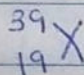 39
19 X